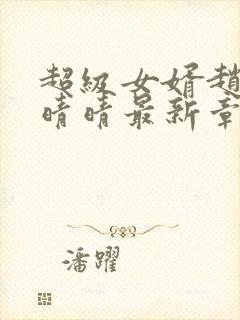 超级女婿趙
晴晴最新章
潘躍